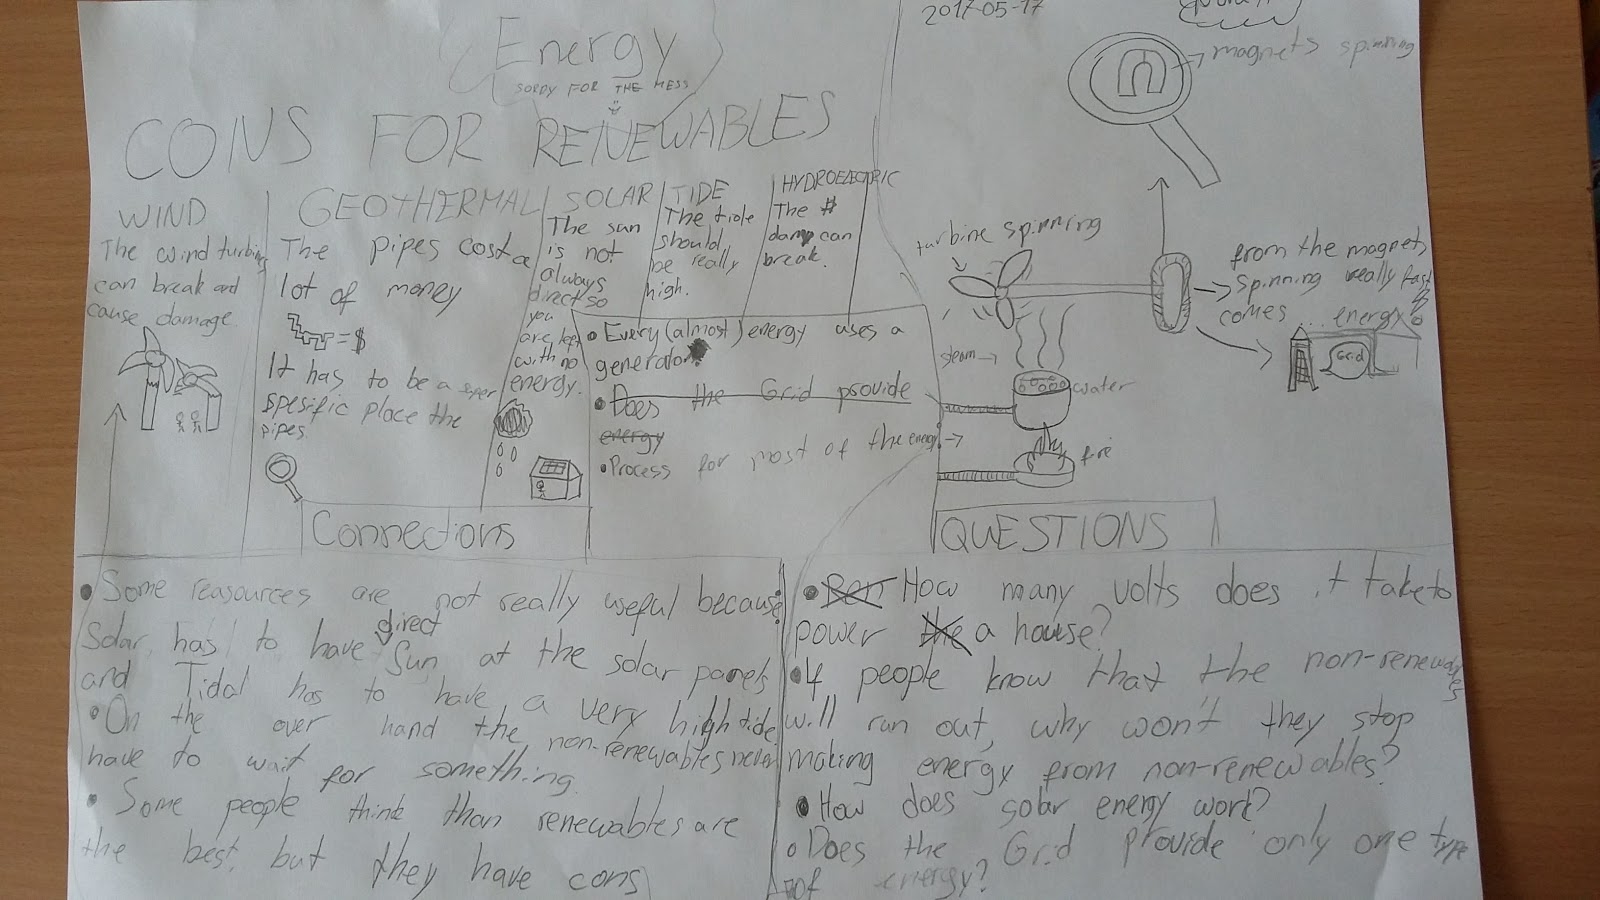 Energy
SORRY FOR THE MESS
2017-05-17
CONS FOR RENEWABLES
WIND
The wind turbine
can break and
cause damage.
GEOTHERMAL
The pipes cost a
lot of money
= $
It has to be a
spesific place the
pipes.
SOLAR
The sun
is not
always
direct so
you
are left
with no
energy.
TIDE
The tide
should
be really
high.
HYDROELECTRIC
The
dam can
break.
• Every (almost) energy uses a
generator
• Does the Grid provide
energy
• Process for most of the energy →
magnets spinning
turbine spinning
from the magnets
spinning really fast
comes ... energy
Grid
steam
water
fire
Connections
• Some reasources are not really useful because
Solar has to have direct Sun at the solar panels
and Tidal has to have a very high tide
• On the over hand the non-renewables never
have to wait for something.
• Some people think than renewables are
the best, but they have cons
QUESTIONS
• How many volts does it take to
power the a house?
• If people know that the non-renewables
will run out, why won't they stop
making energy from non-renewables?
• How does solar energy work?
• Does the Grid provide only one type
of energy?